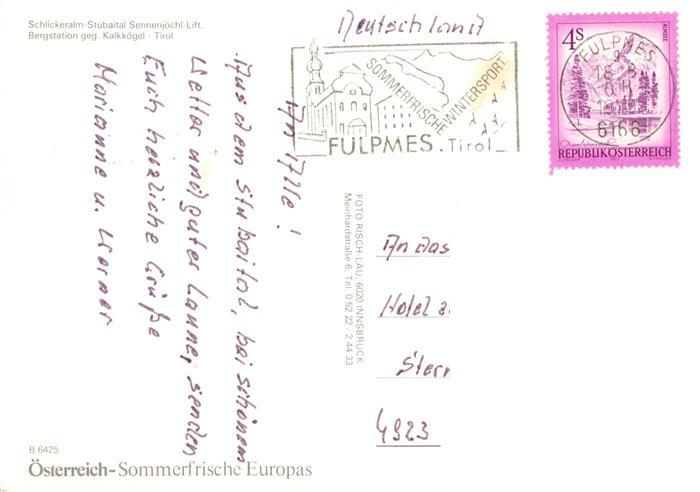 Schlickeralm-Stubaital Sennenjöchl-Lift,
Bergstation geg. Kalkkögel - Tirol
Deutschland
SOMMERFRISCHE
WINTERSPORT
FULPMES. Tirol
4S
ALMSEE
REPUBLIK ÖSTERREICH
FULPMES
6166
An Alle!
Aus dem Stubaital, bei schönem
Wetter und guter Laune, senden
Euch herzliche Grüße
Marianne u. Werner
FOTO RISCH-LAU, 6020 INNSBRUCK
Meinhardstraße 6, Tel. 0 52 22 / 2 44 33
An das
Hotel
Stern
4923
B 6425
Österreich-Sommerfrische Europas